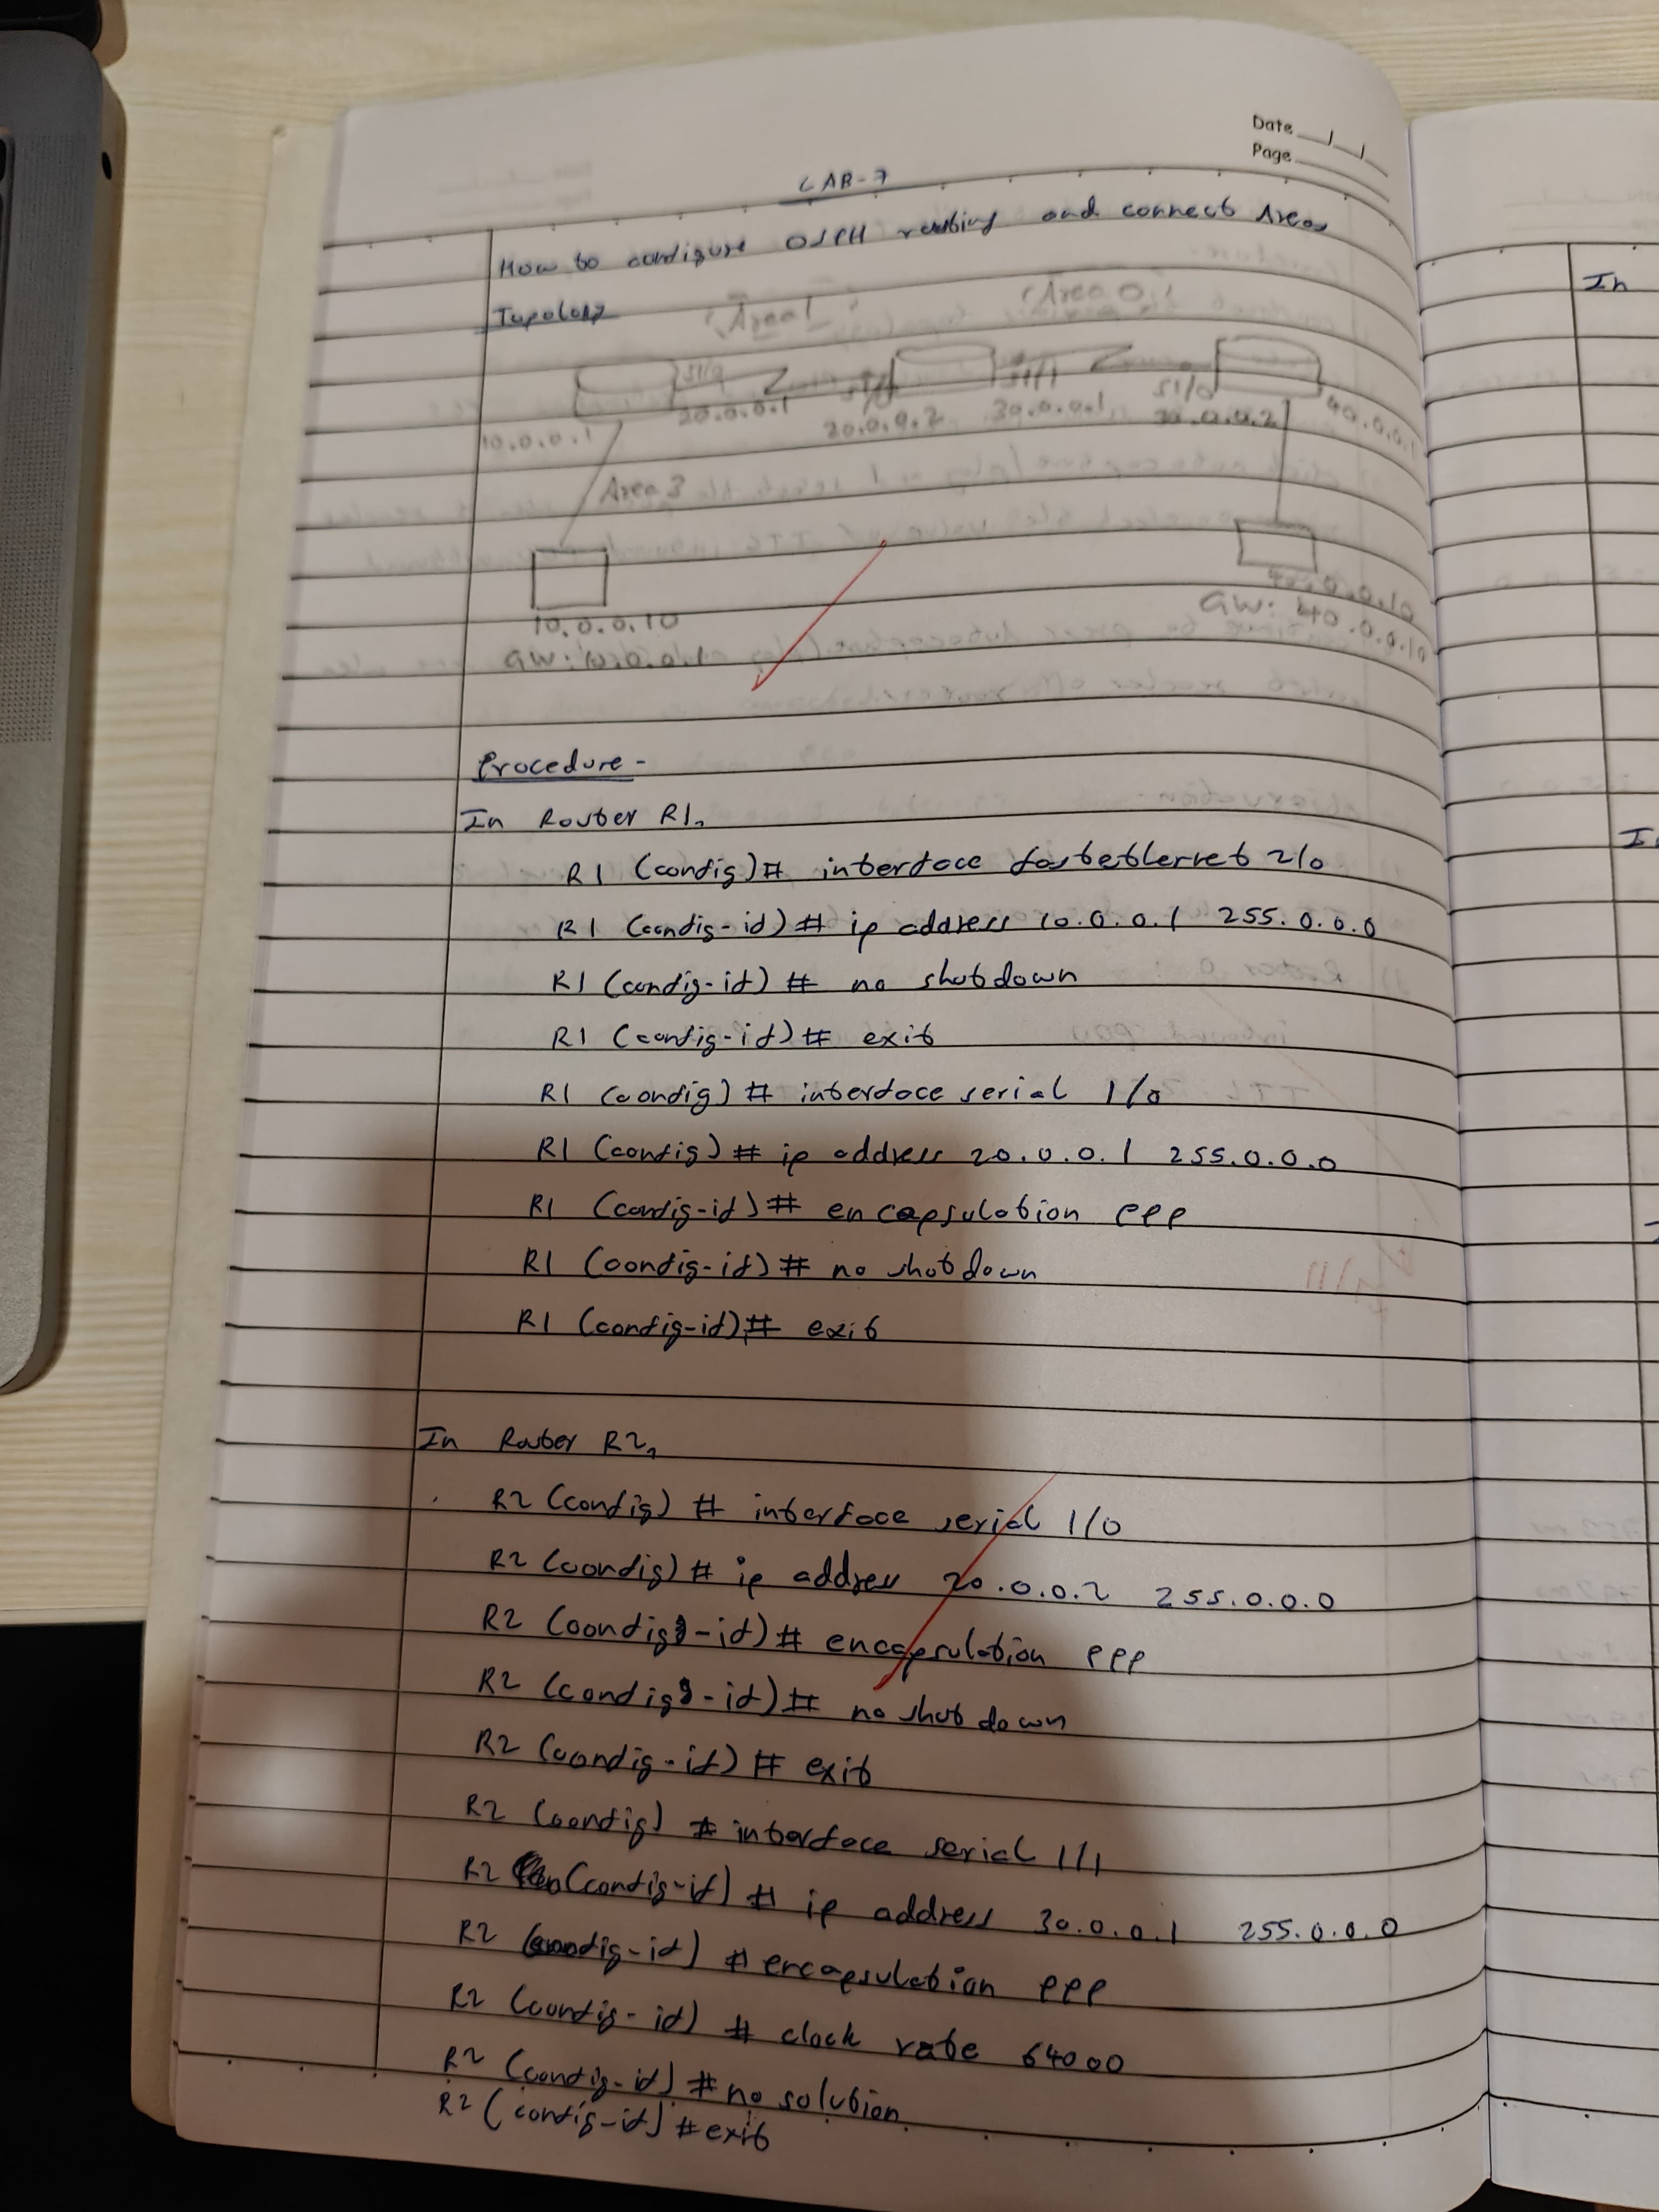 Date
Page
LAB-7
How to configure OSPH routing and connect Areas
Topology
Area 1 Area 0
S1/0 S1/0 S1/1 S1/0
10.0.0.1 20.0.0.1 20.0.0.2 30.0.0.1 30.0.0.2 40.0.0.1
Area 3
10.0.0.10 40.0.0.10
GW: 10.0.0.1 GW: 40.0.0.10
Procedure -
In Router R1,
R1 (config)# interface fastethernet 2/0
R1 (config-if)# ip address 10.0.0.1 255.0.0.0
R1 (config-if)# no shutdown
R1 (config-if)# exit
R1 (config)# interface serial 1/0
R1 (config)# ip address 20.0.0.1 255.0.0.0
R1 (config-if)# encapsulation ppp
R1 (config-if)# no shutdown
R1 (config-if)# exit
In Router R2,
R2 (config)# interface serial 1/0
R2 (config)# ip address 20.0.0.2 255.0.0.0
R2 (config-if)# encapsulation ppp
R2 (config-if)# no shutdown
R2 (config-if)# exit
R2 (config) # interface serial 1/1
R2 (config-if) # ip address 30.0.0.1 255.0.0.0
R2 (config-if) # encapsulation ppp
R2 (config-if) # clock rate 64000
R2 (config-if) # no solution
R2 (config-if) # exit
In